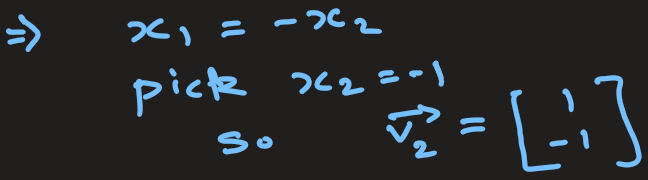 ⇒ x₁ = -x₂
pick x₂ = -1
so v⃗₂ = [1 -1]